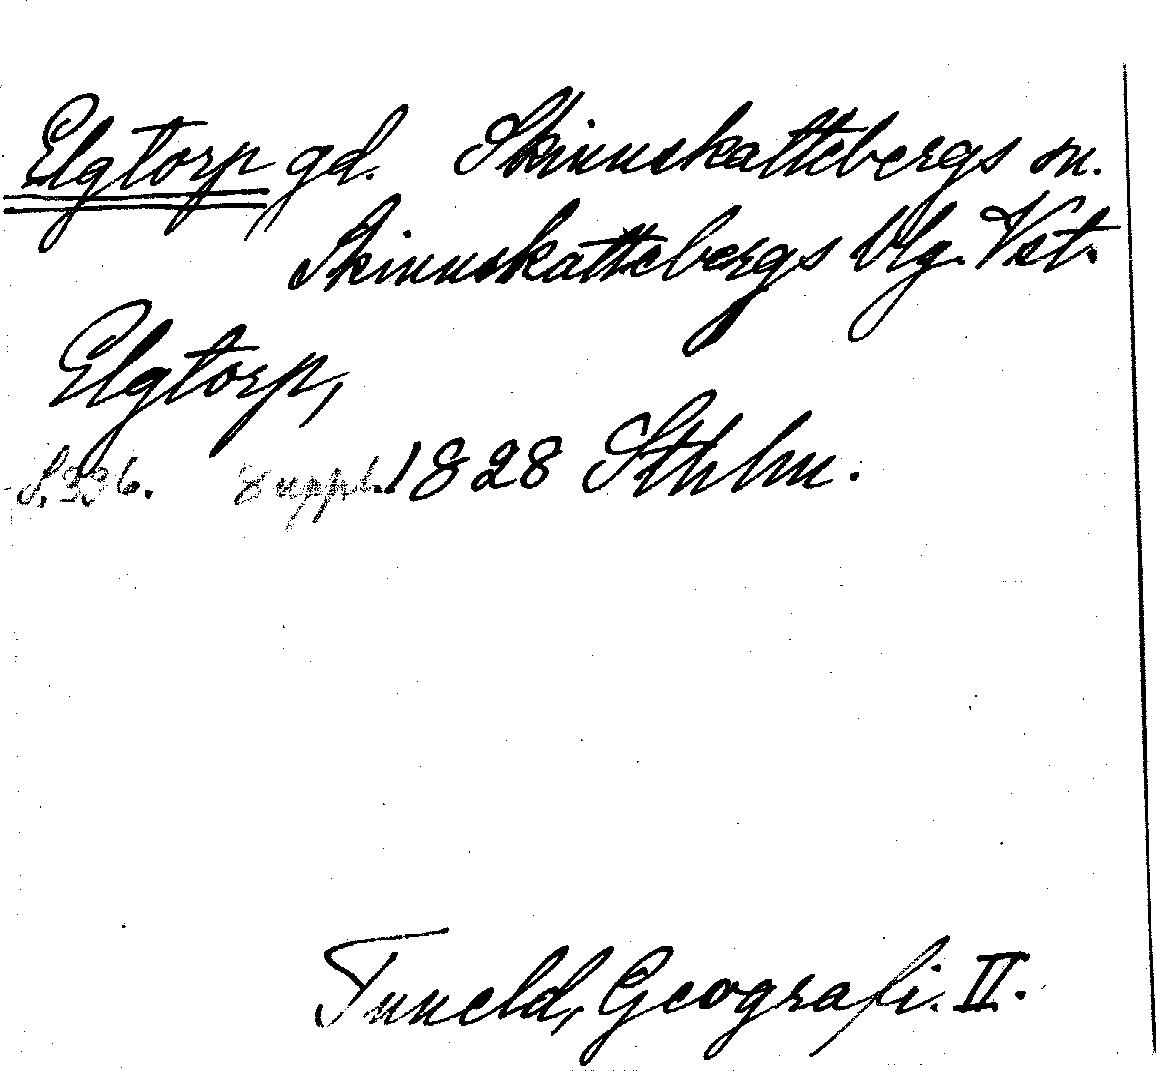 Elgtorp, gd. Skinnskattebergs sn.
Skinnskattebergs blg. Vst.
Elgtorp,
S. 336. Suppl. 1828 Sthlm.
Tuneld, Geografi. II.